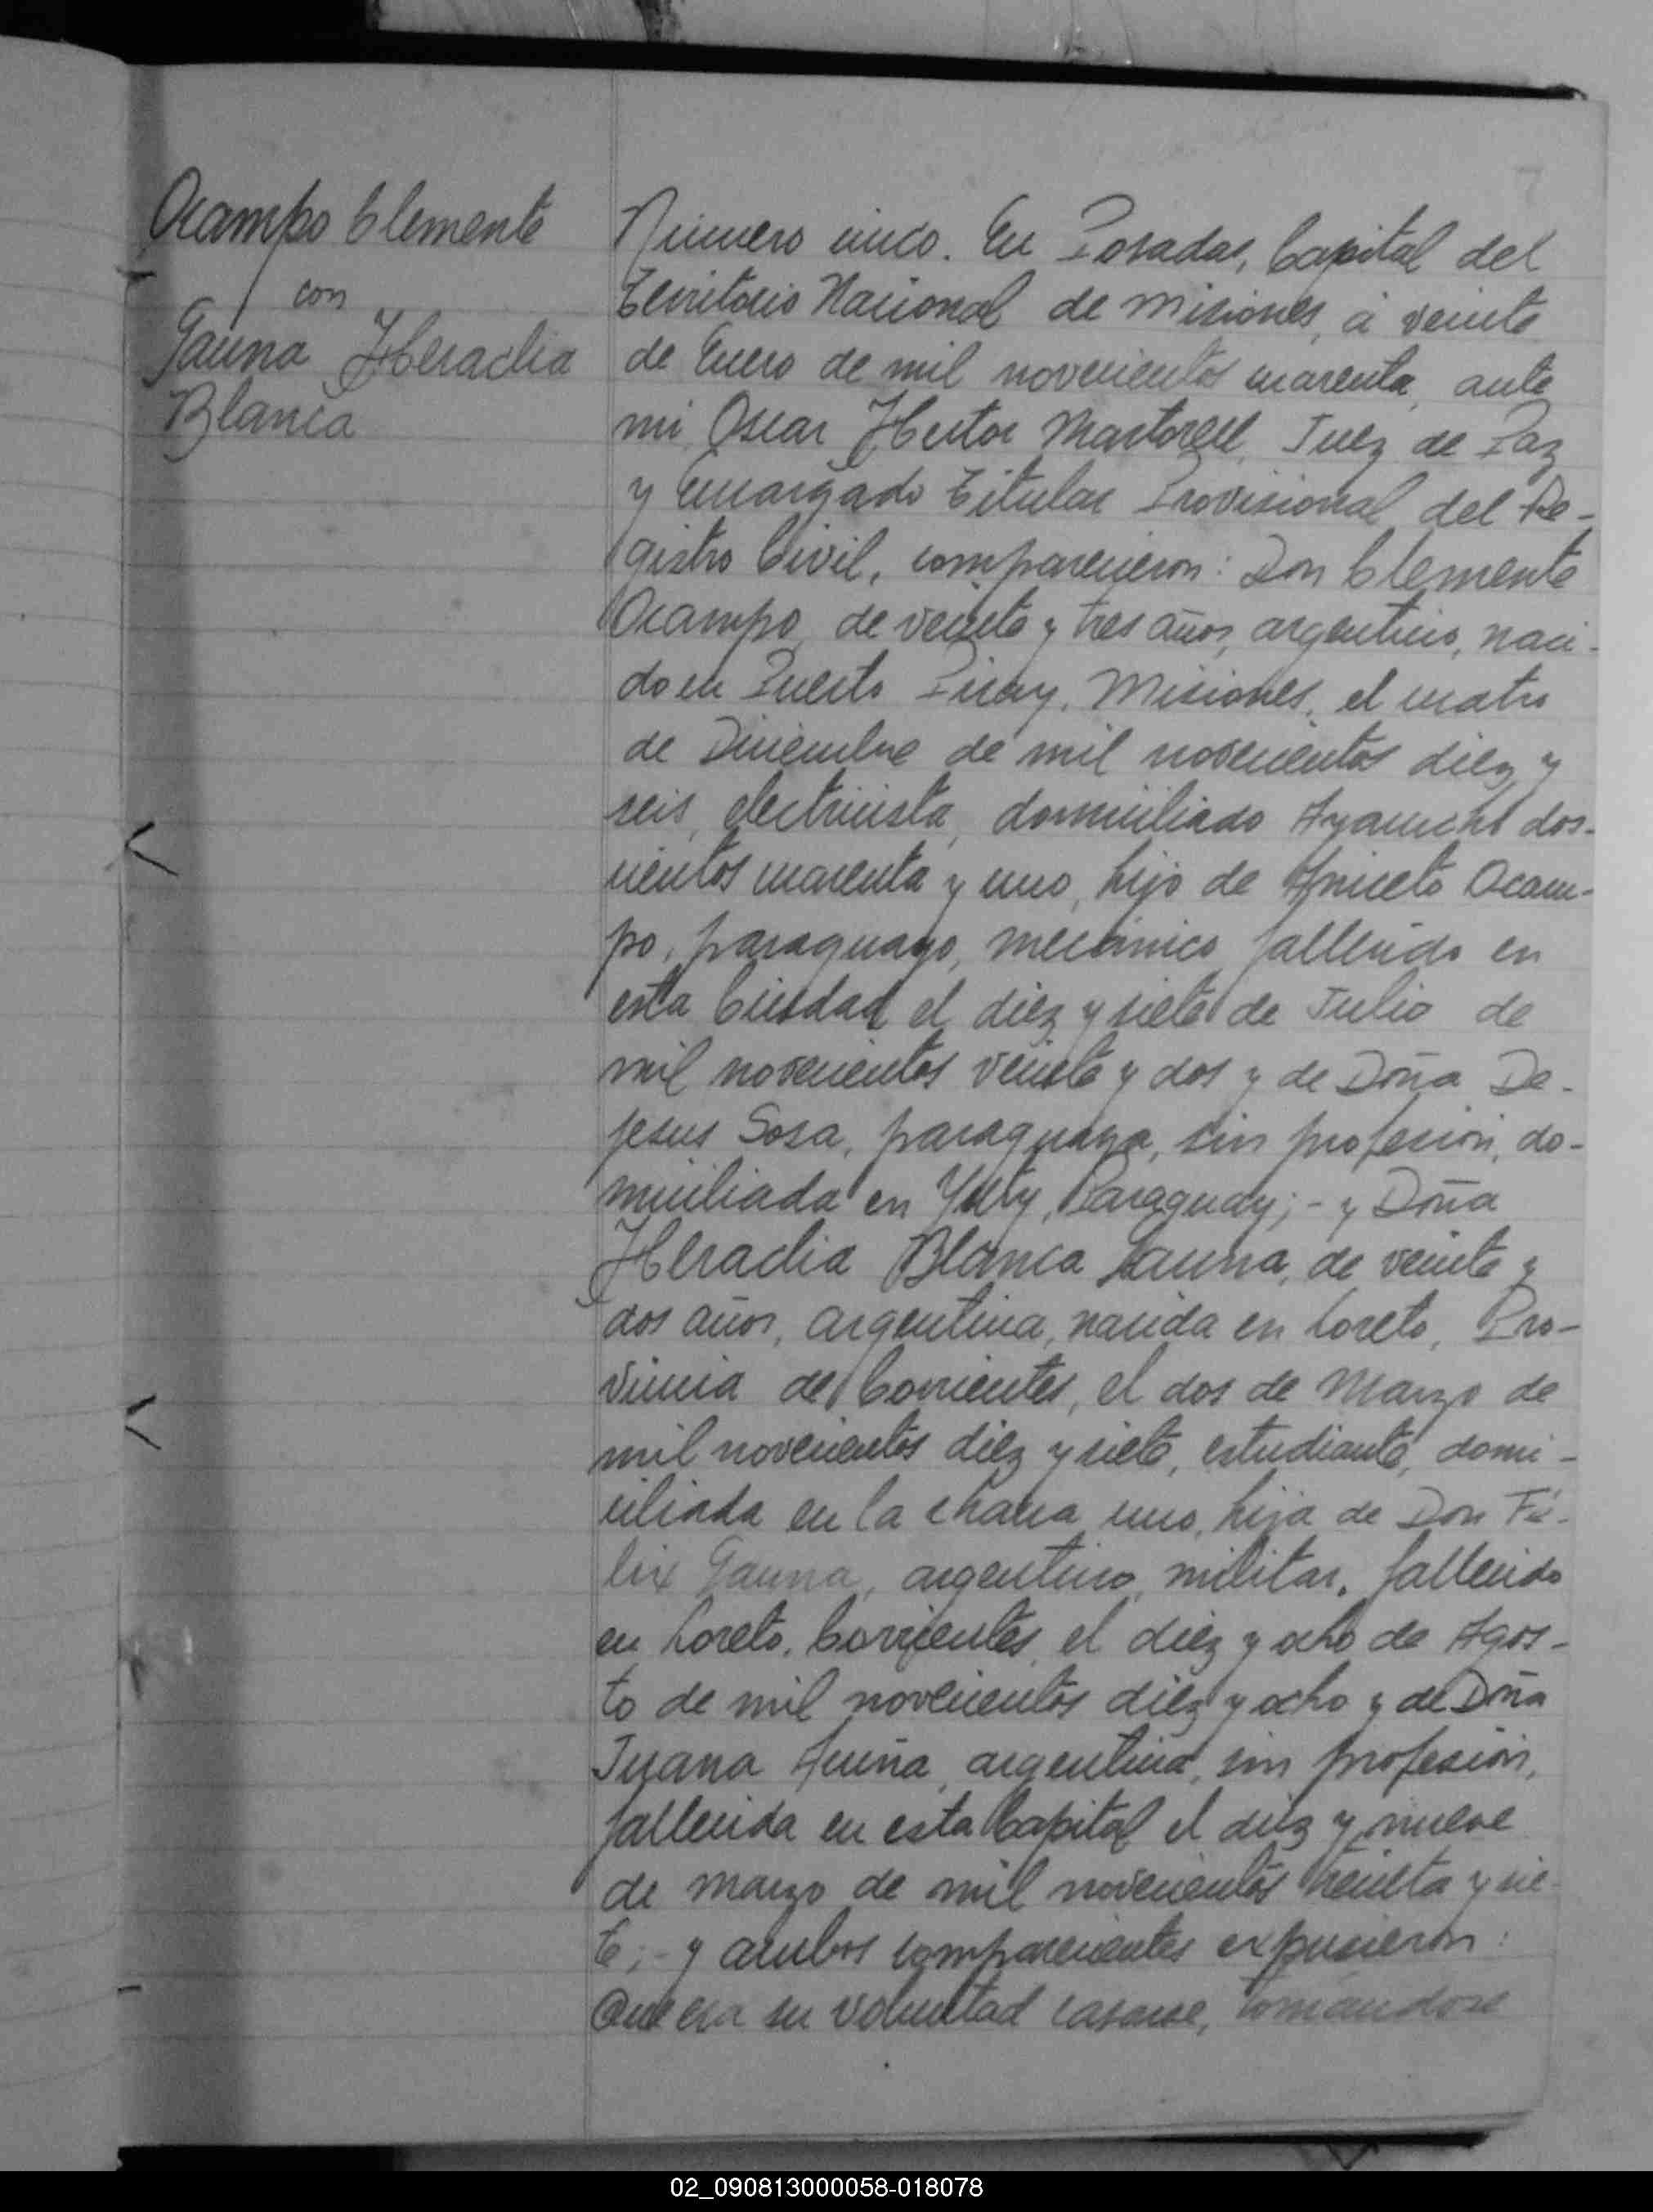 7
Ocampo Clemente
con
Gauna Heraclia
Blanca
Número cinco. En Posadas, Capital del
Territorio Nacional de Misiones, á veinte
de Enero de mil novecientos cuarenta, ante
mi Oscar Hector Martorell, Juez de Paz
y Encargado Titular Provisional del Re-
gistro Civil, comparecieron: Don Clemente
Ocampo, de veinte y tres años, argentino, naci-
do en Puerto Piray, Misiones, el cuatro
de Diciembre de mil novecientos diez y
seis, electricista, domiciliado Ayacucho dos-
cientos cuarenta y uno, hijo de Aniceto Ocam-
po, paraguayo, mecánico, fallecido en
esta Ciudad el diez y siete de Julio de
mil novecientos veinte y dos y de Doña De-
jesus Sosa, paraguaya, sin profesión, do-
miciliada en Yuty, Paraguay; - y Doña
Heraclia Blanca Gauna, de veinte y
dos años, argentina, nacida en Loreto, Pro-
vincia de Corrientes, el dos de Marzo de
mil novecientos diez y siete, estudiante, domi-
ciliada en la chacra uno, hija de Don Fé-
lix Gauna, argentino, militar, fallecido
en Loreto, Corrientes, el diez y ocho de Agos-
to de mil novecientos diez y ocho y de Doña
Juana argentina, sin profesión,
fallecida en esta Capital el diez y nueve
de marzo de mil novecientos treinta y sie-
te; - y ambos comparecientes expusieron:
Que era su voluntad casarse, tomándose
02_090813000058-018078